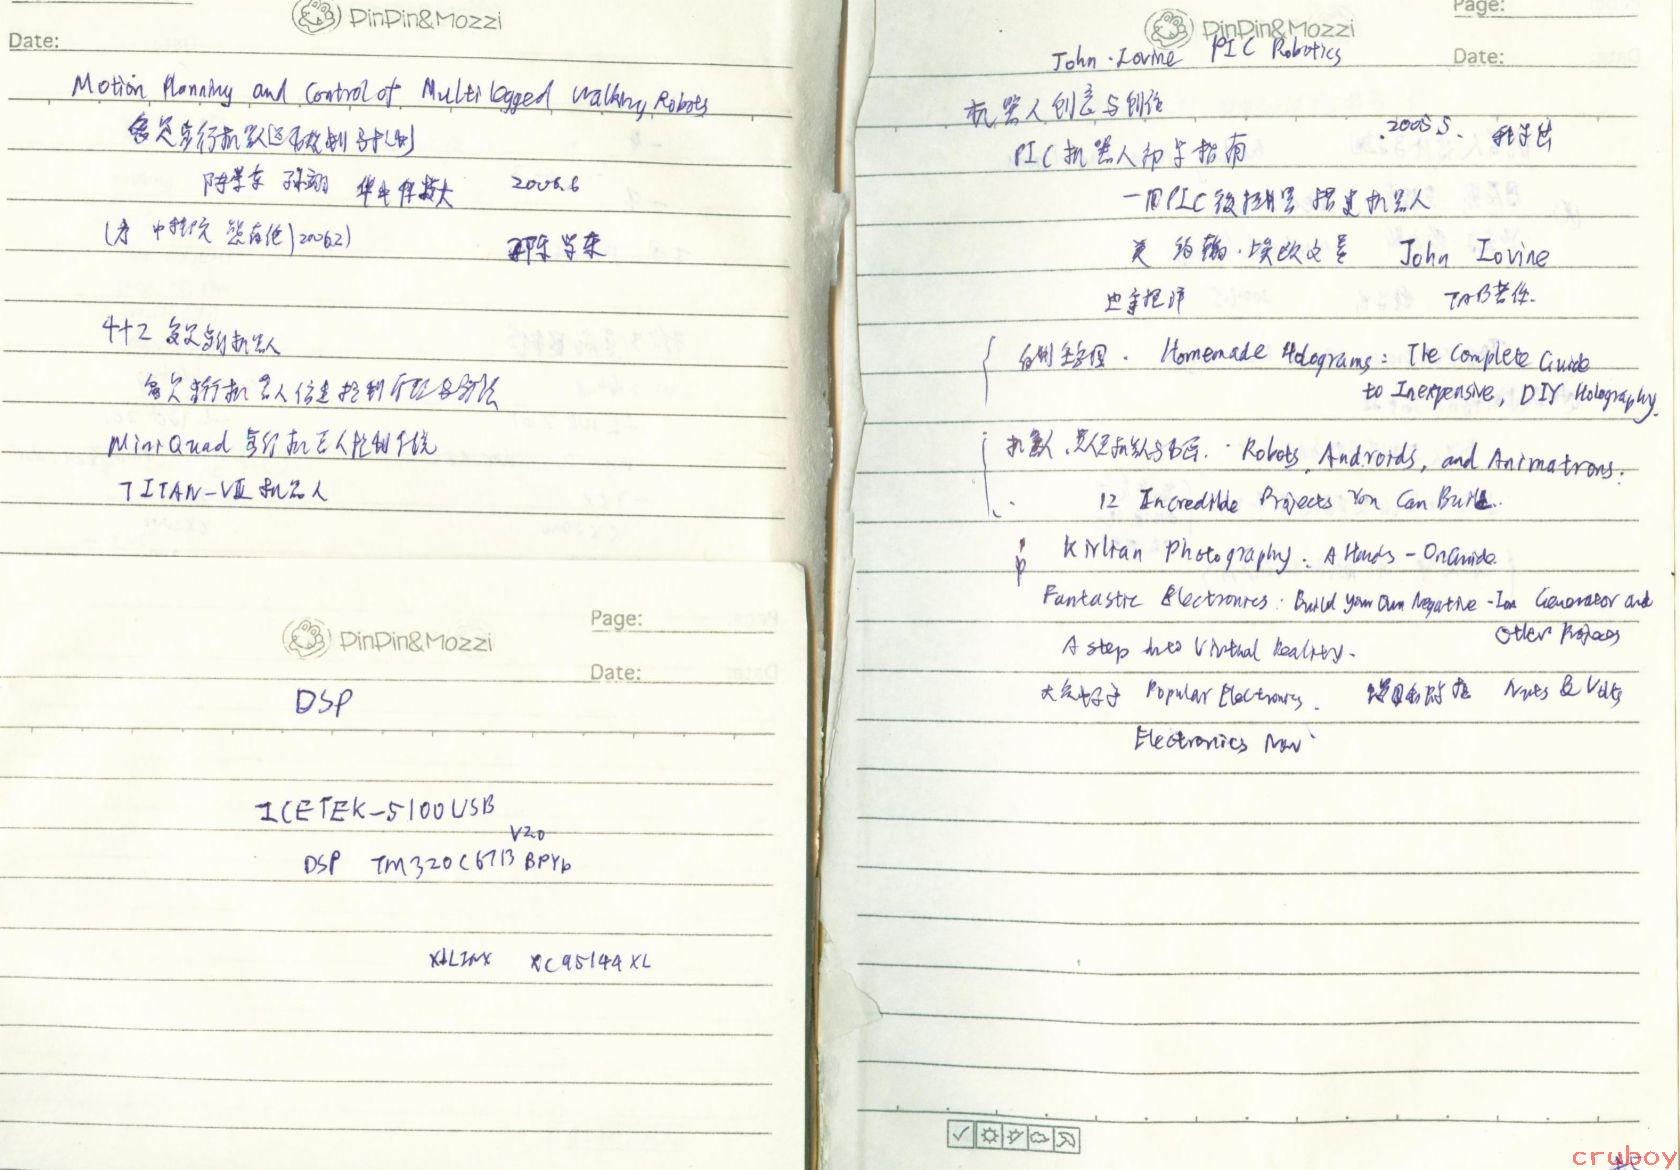 PinPin&Mozzi
Date:
Motion Planning and Control of Multilegged Walking Robots
多足步行机器人运动规划与控制
陈学东 孙翊 华中科技大 2006.6
(序 中科院 熊有伦) 2006.2) 陈学东
4+2 多足步行机器人
多足步行机器人位姿控制
MiniQuad 步行机器人控制系统
TITAN-VIII 机器人
PinPin&Mozzi
Page:
Date:
DSP
ICETEK-5100USB
V2.0
DSP TM320C6713 BPYP
XILINX XC95144XL
PinPin&Mozzi
Page:
Date:
John·Iovine PIC Robotics
机器人创意与制作
2005.5. 科学出
PIC机器人初学指南
—用PIC微控制器搭建机器人
美 约翰·埃欧文 John Iovine
TAB者作.
自制全息图. Homemade Holograms: The Complete Guide
to Inexpensive, DIY Holography.
机器人, Robots, Androids, and Animatrons:
12 Incredible Projects You Can Build.
Kirlian Photography: A Hands-On Guide.
Fantastic Electronics: Build your Own Negative-Ion Generator and
Other Projects
A step into Virtual Reality.
大众电子 Popular Electronics. 螺母和螺栓 Nuts & Volts
Electronics Now
cruboy